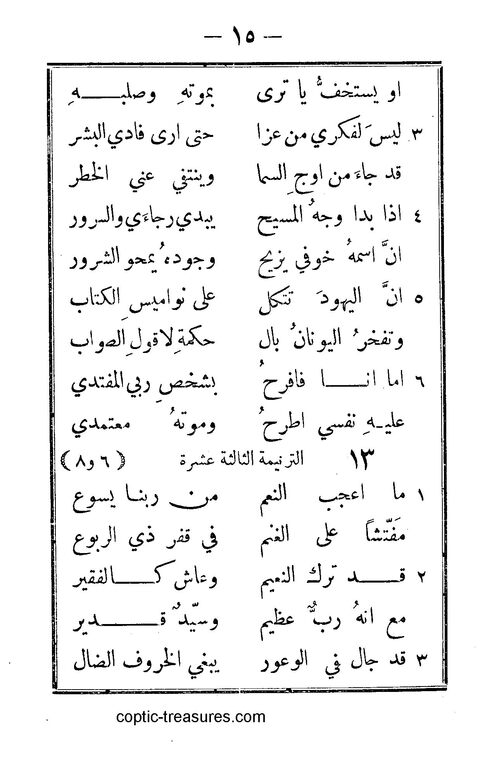 — ١٥ —
او يستخفُّ يا ترى بموتهِ وصلبهِ
٣ ليسَ لفكري من عزا حتى ارى فادي البشر
قد جاءَ من اوجِ السما وينتفي عني الخطر
٤ اذا بدا وجهُ المسيح يبدي رجاءَي والسرور
انَّ اسمهُ خوفي يزيح وجودهُ يمحو الشرور
٥ انَّ اليهودَ تتكل على نواميس الكتاب
وتفخرُ اليونانُ بال حكمةِ لا قولِ الصواب
٦ اما انا فافرحُ بشخصِ ربي المفتدي
عليهِ نفسي اطرحُ وموتهُ معتمدي
١٣ الترنيمة الثالثة عشرة (٦ و٨)
١ ما اعجب النعم من ربنا يسوع
مفتّشاً على الغنم في قفر ذي الربوع
٢ قد ترك النعيم وعاش كالفقير
مع انهُ ربٌّ عظيم وسيّدٌ قدير
٣ قد جال في الوعور يبغي الخروف الضال
coptic-treasures.com